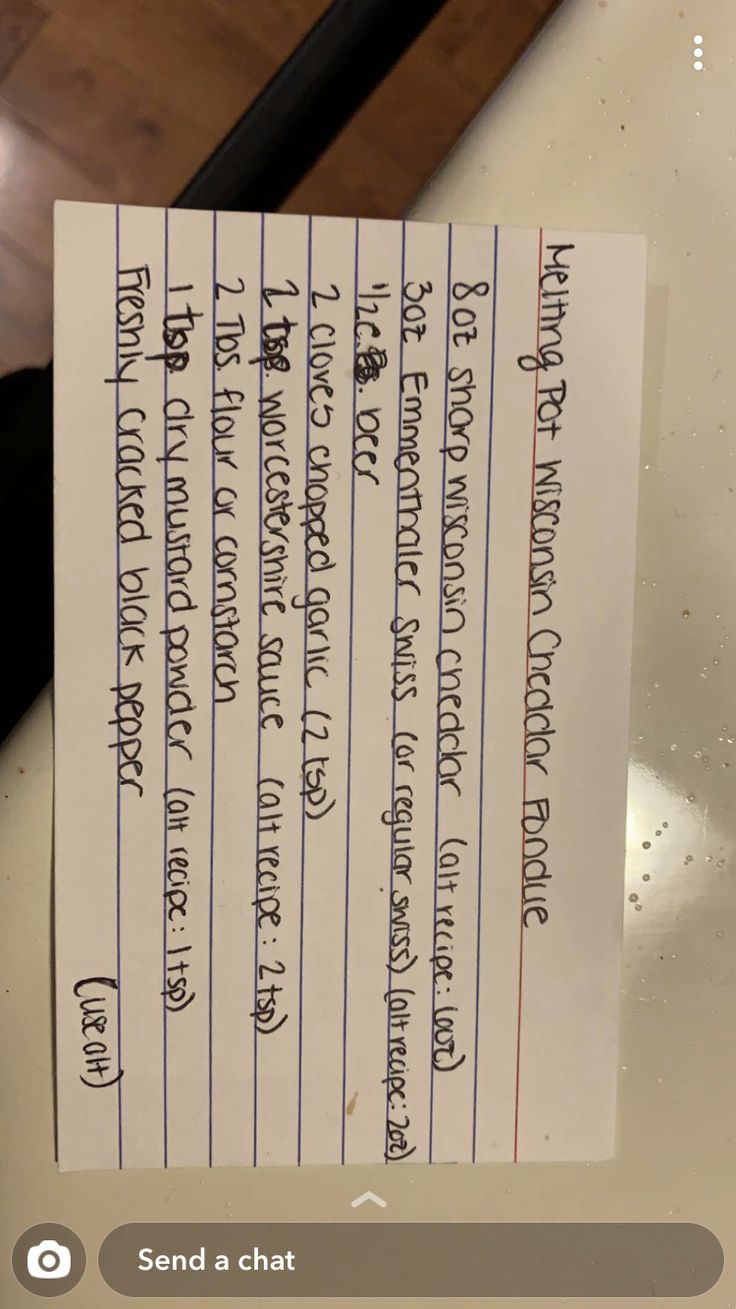 Melting Pot Wisconsin Cheddar Fondue
8 oz sharp wisconsin cheddar (alt recipe: 6oz)
3oz Emmenthaler Swiss (or regular swiss) (alt recipe: 2oz)
1/2 c. beer
2 cloves chopped garlic (2 tsp)
2 tsp. worcestershire sauce (alt recipe: 2 tsp)
2 Tbs. flour or cornstarch
1 tbsp. dry mustard powder (alt recipe: 1 tsp)
Freshly cracked black pepper
(use alt)
Send a chat